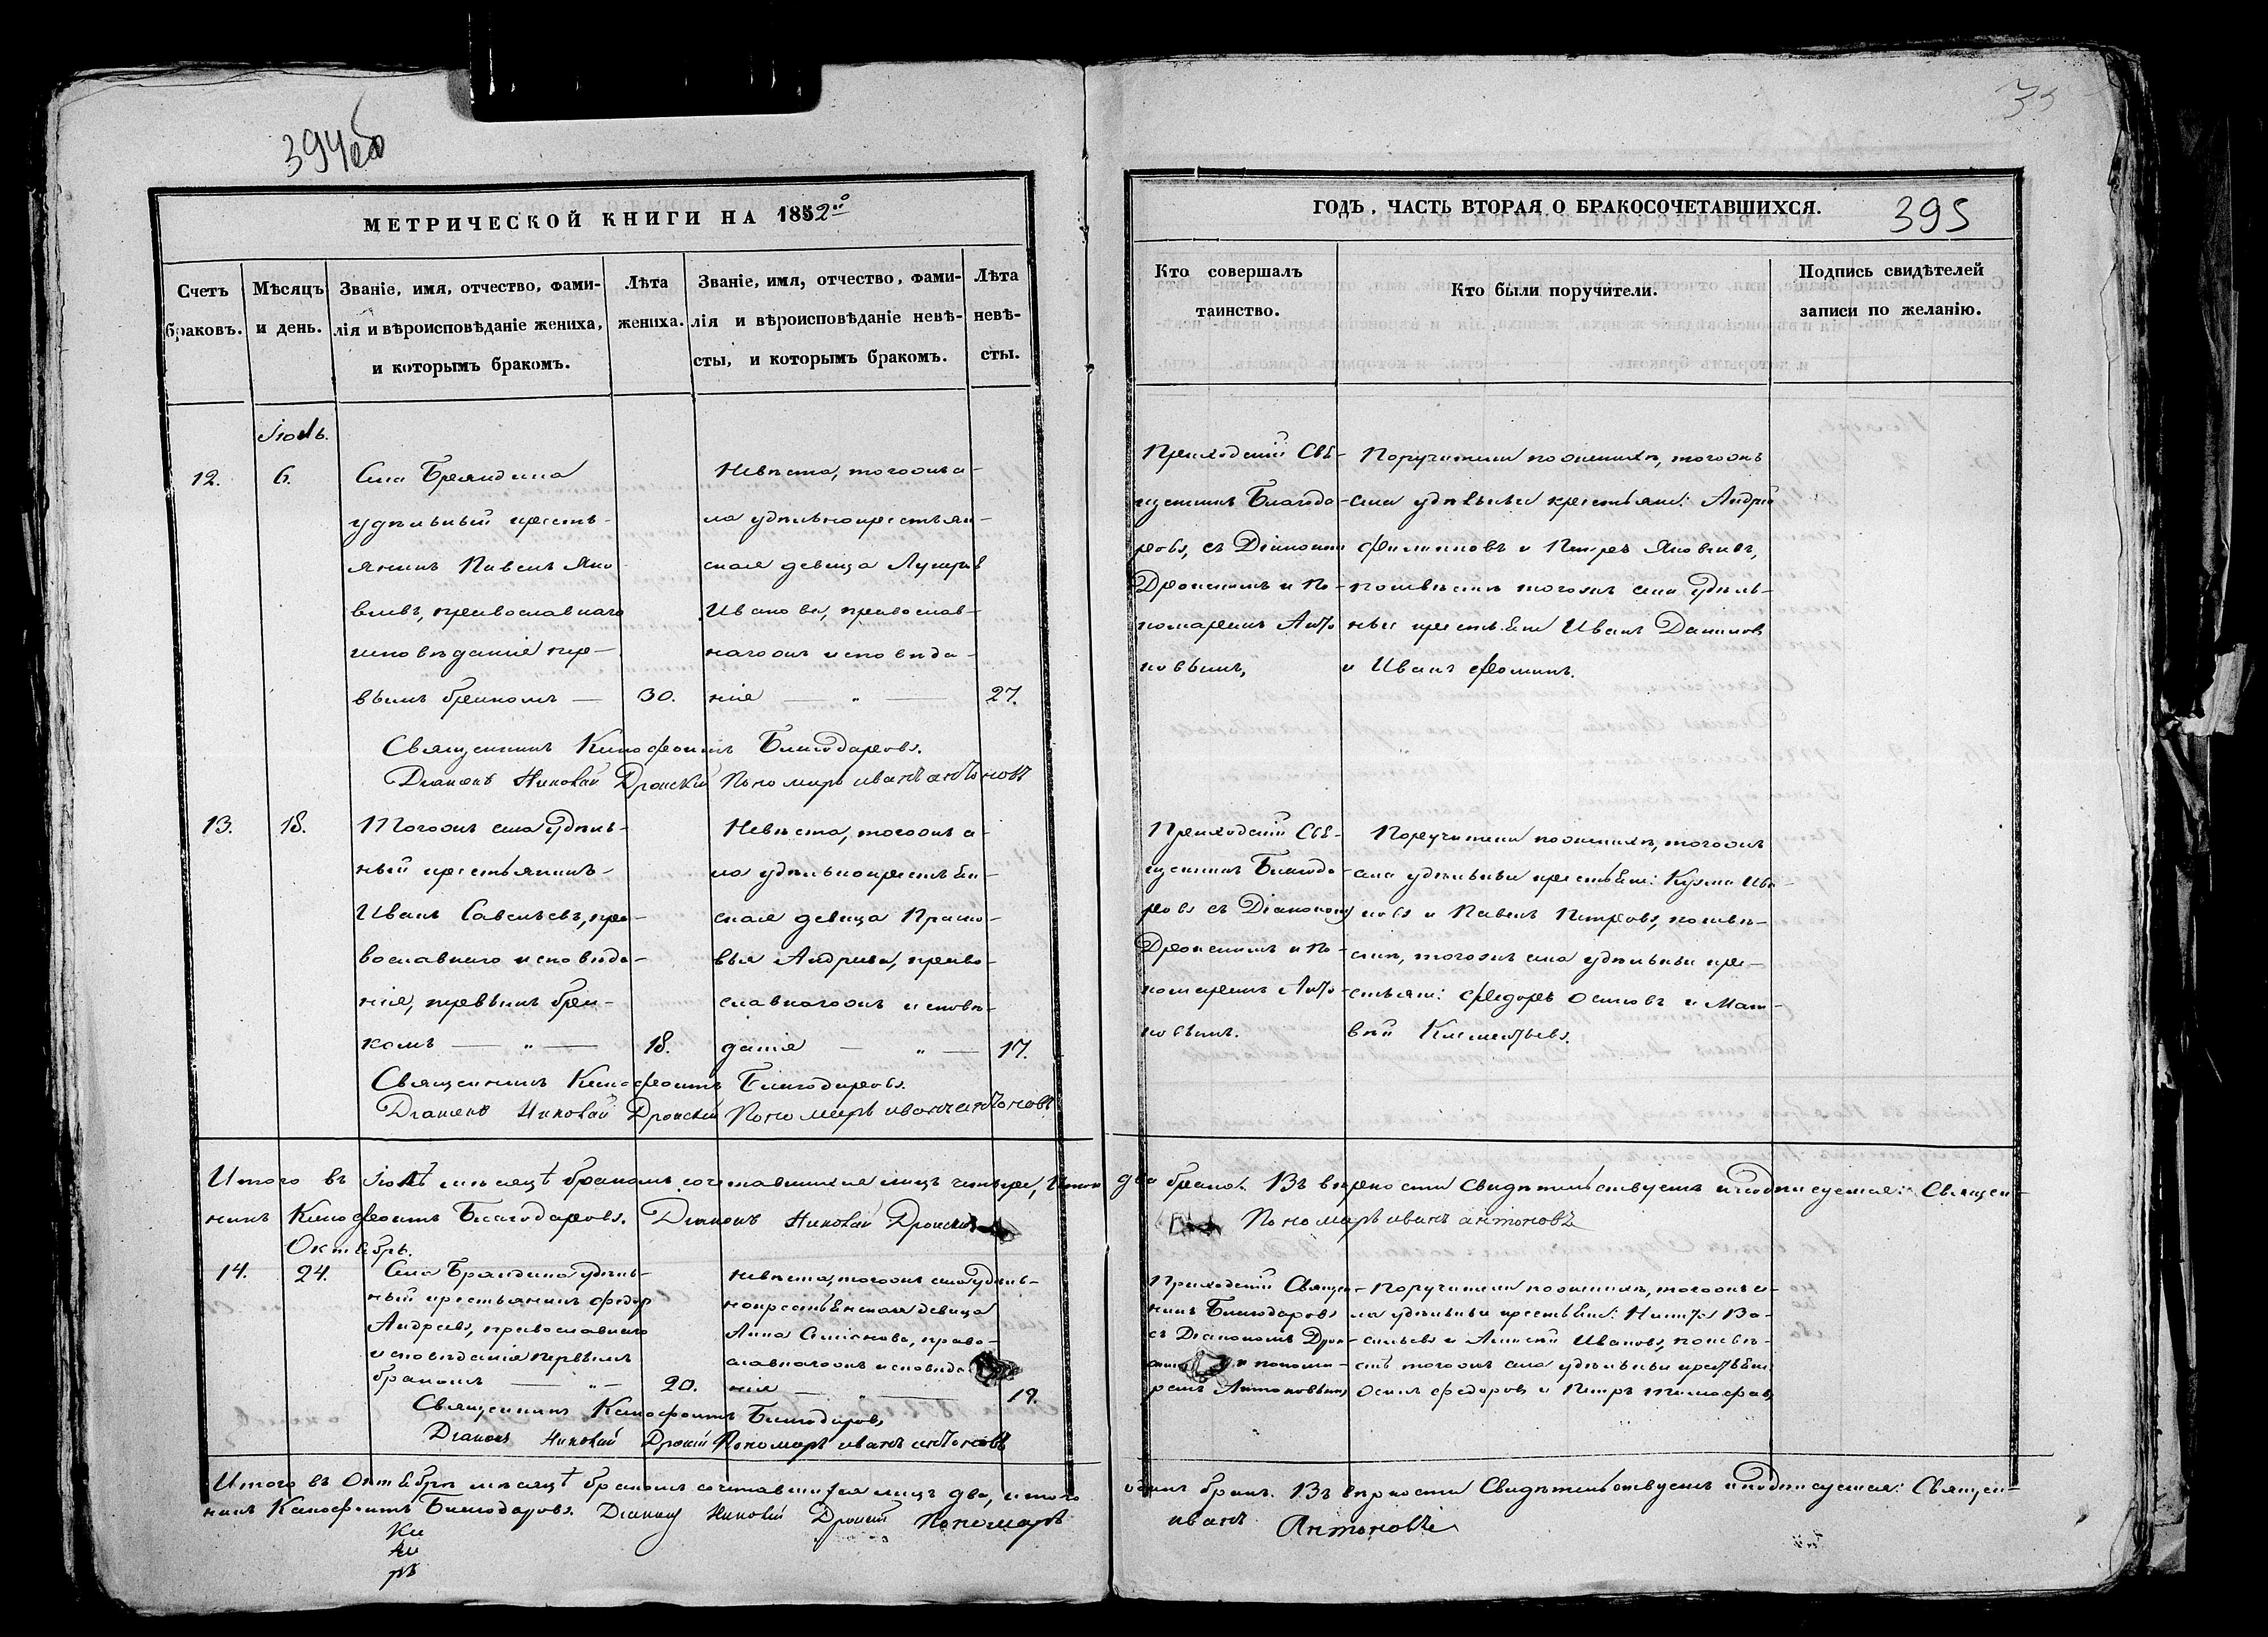 394об
МЕТРИЧЕСКОЙ КНИГИ НА 1852го
Счетъ браковъ.
Мѣсяцъ и день.
Званіе, имя, отчество, фами-
лія и вѣроисповѣданіе жениха,
и которымъ бракомъ.
Лѣта
жениха.
Званіе, имя, отчество, фами-
лія и вѣроисповѣданіе невѣ-
сты, и которымъ бракомъ.
Лѣта
невѣ-
сты.
Іюль.
12.
6.
Села Брандина
удѣльный кресть-
янинъ Павелъ Яко
влевъ, православнаго
исповѣданія пер-
вымъ бракомъ —
30.
Невѣста, тогожъ се-
ла удѣльнокрестьян-
ская девица
Иванова, православ-
нагожъ исповѣда-
нія — „ —
27.
Священникъ Ксенофонтъ Благодаровъ.
Діаконъ Николай Дронскій Пономарь иванъ антоновъ
13.
18.
Тогожъ села удѣль-
ный крестьянинъ
Иванъ Савельевъ, пра-
вославнаго исповѣда-
нія, первымъ бра-
комъ — „ —
18.
Невѣста, тогожъ се-
ла удѣльнокрестьян-
ская девица Праско-
вья Андреева, право-
славнагожъ исповѣ-
данія — „ —
17.
Священникъ Ксенофонтъ Благодаровъ.
Діаконъ Николай Дронскій Пономарь иванъ антоновъ
Итого въ Іюлѣ месяцѣ бракомъ сочетавшихся лицъ четыре, Итого
никъ Ксенофонтъ Благодаровъ. Діаконъ Николай Дронскій
Октябрь.
14.
24.
Села Брандина удѣль-
ный крестьянинъ Федоръ
Андреевъ, православнаго
исповѣданія первымъ
бракомъ — „ —
20.
Невѣста, тогожъ села удѣль-
нокрестьянская девица
Анна Семіонова, право-
славнагожъ исповѣда
нія — „ —
19.
Священникъ Ксенофонтъ Благодаровъ
Діаконъ Николай Дронскій Пономарь иванъ антоновъ
Итого въ Октябрѣ месяцѣ бракомъ сочетавшихся лицъ два, итого
никъ Ксенофонтъ Благодаровъ. Діаконъ Николай Дронскій Пономарь
35
ГОДЪ, ЧАСТЬ ВТОРАЯ О БРАКОСОЧЕТАВШИХСЯ.
395
Кто совершалъ
таинство.
Кто были поручители.
Подпись свидѣтелей
записи по желанію.
Приходскій Свя-
щенникъ Благода-
ровъ, съ Діакономъ
Дронскимъ и По-
номаремъ Анто
новымъ,
Поручители по женихѣ, тогожъ
села удѣльныя крестьяни: Андрей
Филипповъ и Петръ Яковлевъ,
по невѣстѣ тогожъ села удѣль-
ныя крестьяни Иванъ Даниловъ
и Иванъ Фоминъ.
Приходскій Свя-
щенникъ Благода-
ровъ съ Діакономъ
Дронскимъ и По-
номаремъ Анто-
новымъ.
Поручители по женихѣ, тогожъ
села удѣльныя крестьяни: Кузма Ива-
новъ и Павелъ Петровъ, по невѣ-
стѣ, тогожъ села удѣльныя кре-
стьяни: Федоръ Осиповъ и Мат-
вѣй Климентьевъ.
два брака. Въ вѣрности Свидѣтельствуетъ и подписуется: Священ-
Пономарь иванъ антоновъ
Приходскій Священ-
никъ Благодаровъ
съ Діакономъ Дрон-
и понома-
ремъ Антоновымъ
Поручители по женихѣ, тогожъ се-
ла удѣльныя крестьяни: Никита Ва-
сильевъ и Алексей Ивановъ, по невѣ-
стѣ тогожъ села удѣльныя крестьяни:
Осипъ Федоровъ и Петръ Тимофеевъ
одинъ бракъ. Въ вѣрности Свидѣтельствуетъ и подписуется: Священ-
иванъ Антоновъ